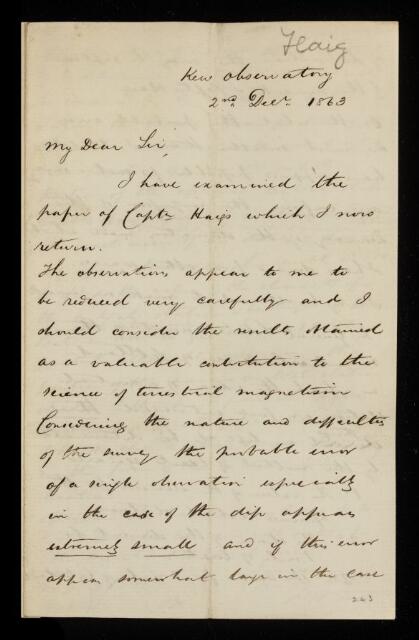 Haig
Kew Observatory
2nd Decr. 1863
My Dear Sir,
I have examined the
paper of Captn Haigs which I now
return.
The observations appear to me to
be reduced very carefully and I
should consider the results obtained
as a valuable contribution to the
science of terrestrial magnetism
Considering the nature and difficulties
of the survey the probable error
of a single observation especially
in the case of the dip appears
extremely small and if this error
appear somewhat large in the case
263